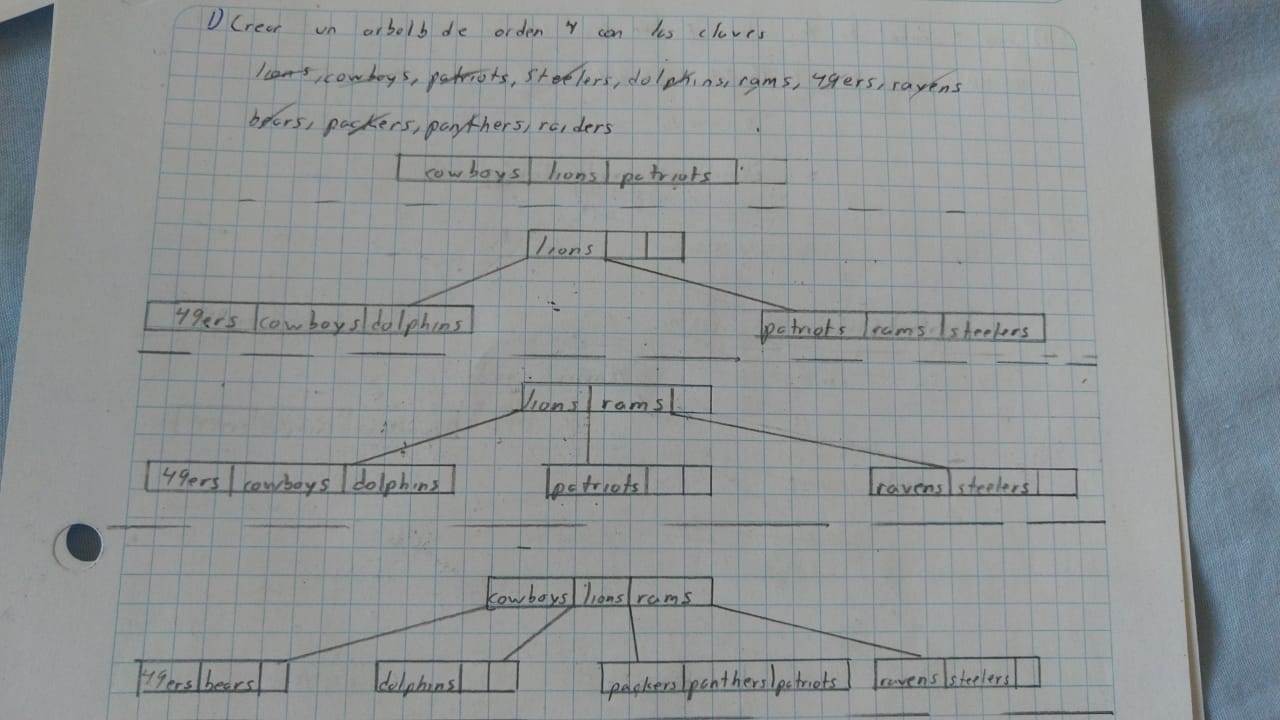 1) Crear un arbol b de orden 4 con las claves
lions, cowboys, patriots, steelers, dolphins, rams, 49ers, ravens
bears, packers, panthers, raiders
cowboys lions patriots
lions
49ers cowboys dolphins patriots rams steelers
lions rams
49ers cowboys dolphins patriots ravens steelers
cowboys lions rams
49ers bears dolphins packers panthers patriots ravens steelers